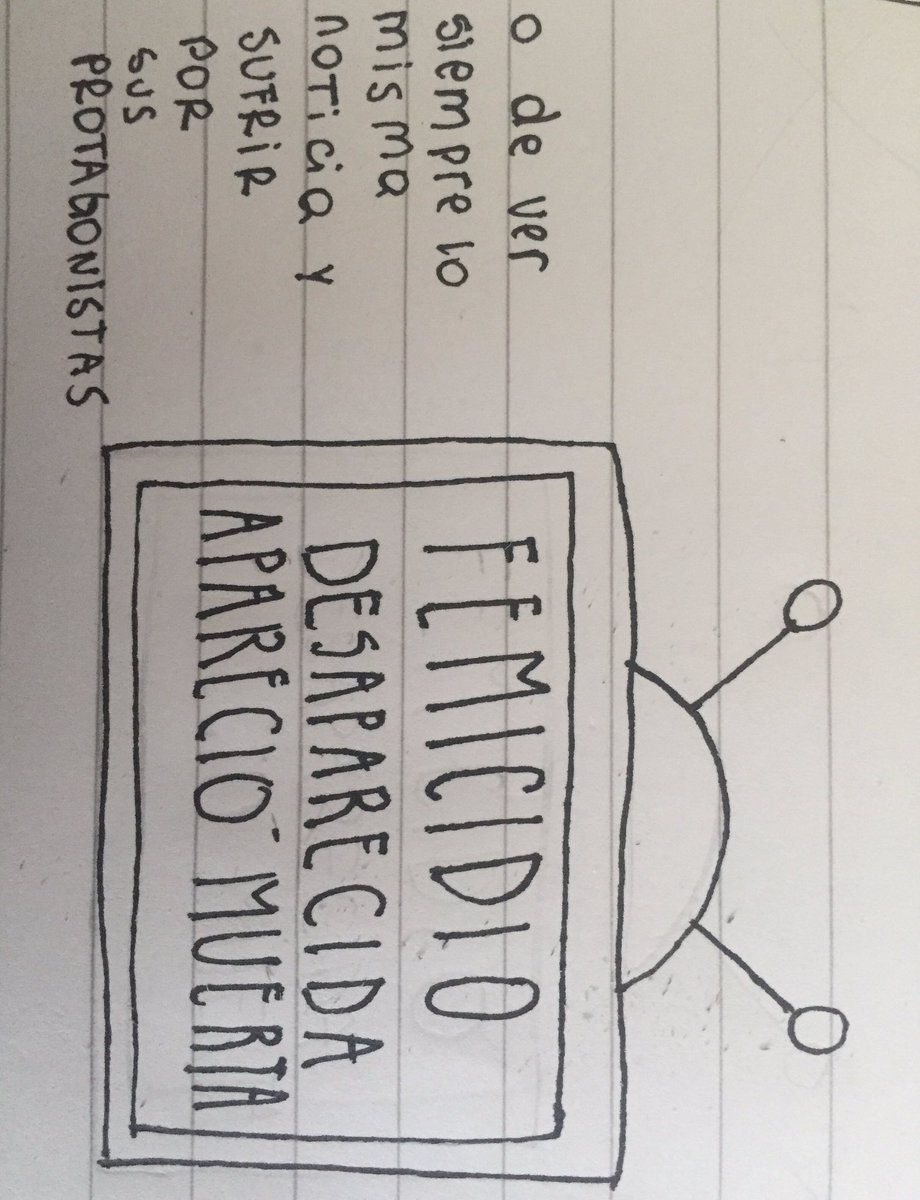 o de ver
siempre lo
misma
noticia y
SUFRIR
POR
SUS
PROTAGONISTAS
FEMICIDIO
DESAPARECIDA
APARECIO MUERTA